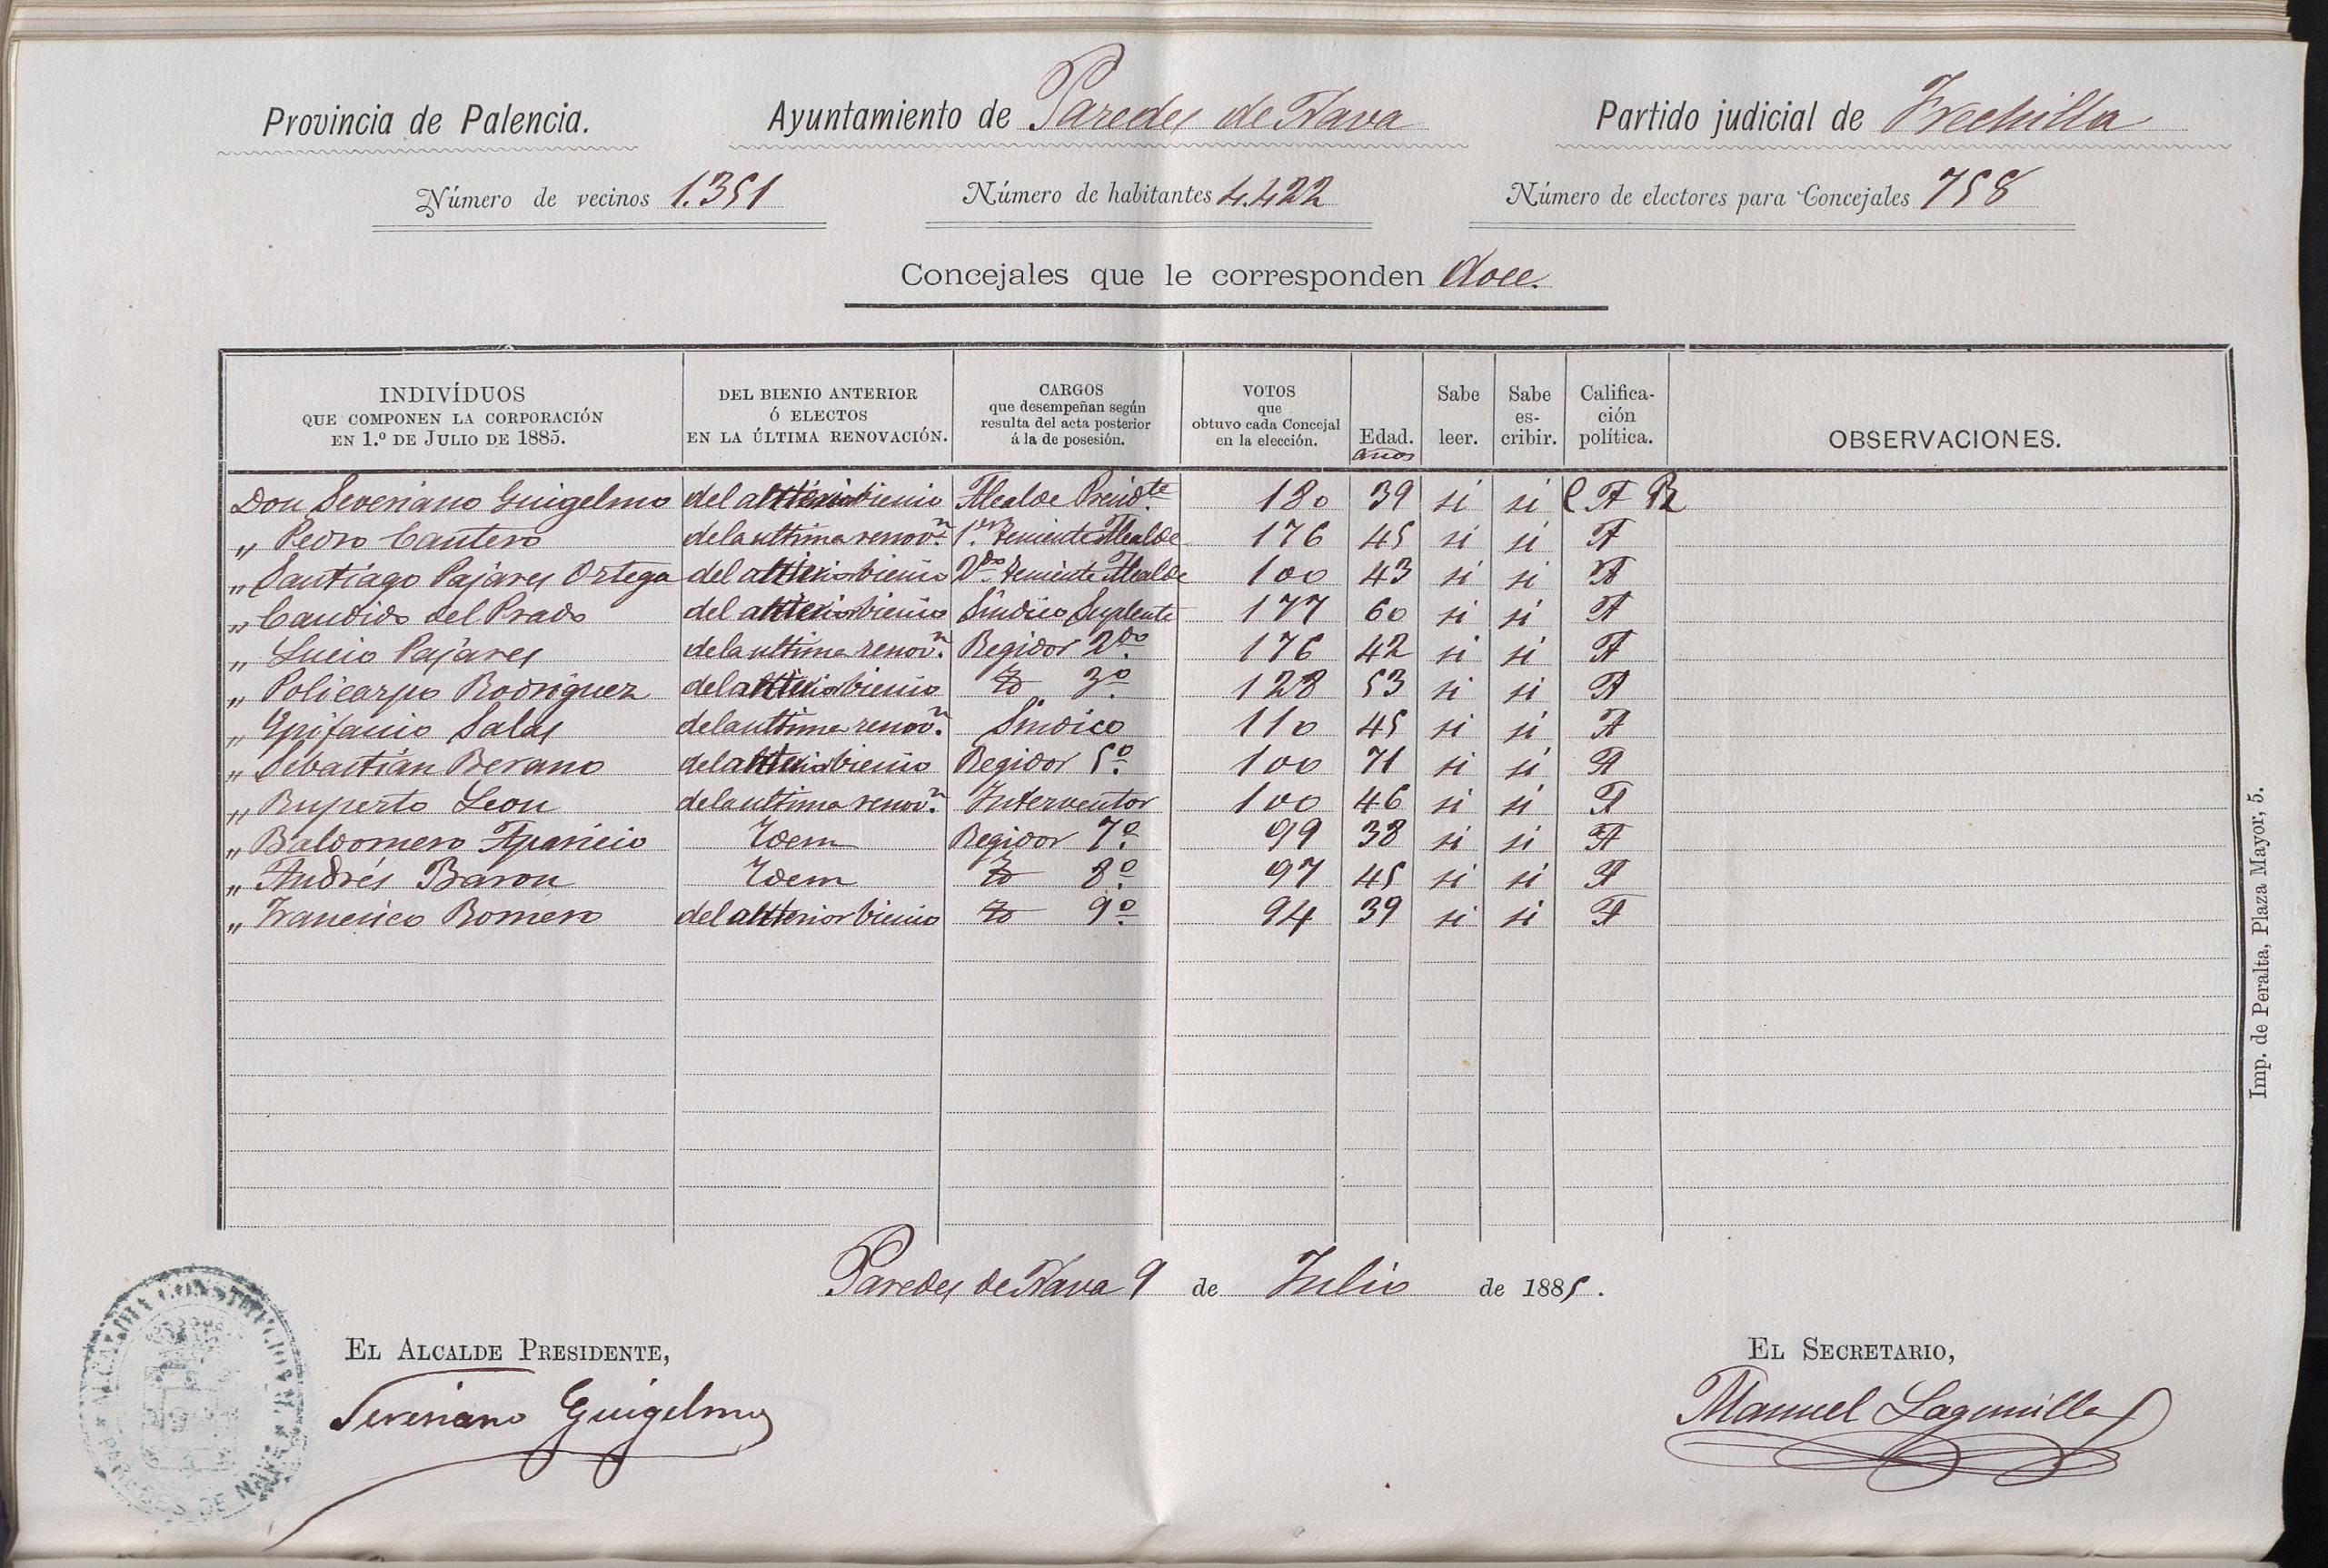 Provincia de Palencia. Ayuntamiento de Paredes de Nava Partido judicial de Frechilla
Número de vecinos 1.351 Número de habitantes 4.422 Número de electores para Concejales 758
Concejales que le corresponden doce.
INDIVÍDUOS QUE COMPONEN LA CORPORACIÓN EN 1.º DE JULIO DE 1885. DEL BIENIO ANTERIOR Ó ELECTOS EN LA ÚLTIMA RENOVACIÓN. CARGOS que desempeñan según resulta del acta posterior á la de posesión. VOTOS que obtuvo cada Concejal en la elección. Edad. años Sabe leer. Sabe es-cribir. Califica-ción política. OBSERVACIONES.
Don Severiano Guigelmo del anterior bienio Alcalde Presidte. 180 39 si si
„ Pedro Cantero de la ultima renovn. 1er. Teniente Alcalde 176 45 si si A
„ Santiago Pajares Ortega del anterior bienio 2do Teniente Alcalde 100 43 si si A
„ Candido del Prado del anterior bienio Síndico Suplente 177 60 si si A
„ Lucio Pajares de la ultima renovn. Regidor 2do. 176 42 si si A
„ Policarpo Rodriguez del anterior bienio Id 3º 128 53 si si A
„ Epifanio Salas de la ultima renovn. Sindico 110 45 si si A
„ Sebastián Berano del anterior bienio Regidor 5º. 100 71 si si A
„ Ruperto Leon de la ultima renovn. Interventor 100 46 si si A
„ Baldomero Aparicio Idem Regidor 7º 99 38 si si A
„ Andrés Baron Idem Id 8º 97 45 si si A
„ Francisco Romero del anterior bienio Id 9º 94 39 si si A
Paredes de Nava 9 de Julio de 1885.
EL ALCALDE PRESIDENTE, EL SECRETARIO,
Severiano Guigelmo Manuel Lagunilla
ALCALDIA CONSTITUCIONAL PAREDES DE NAVA
Imp. de Peralta, Plaza Mayor, 5.